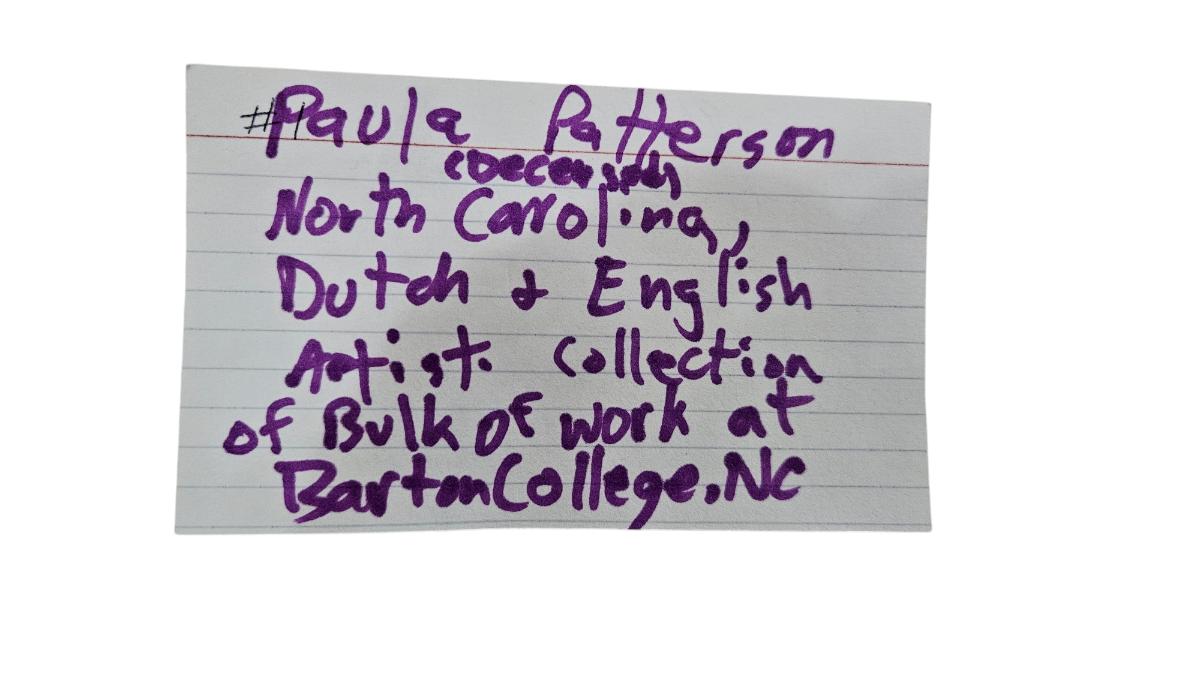 #1 Paula Patterson
(Deceased)
North Carolina,
Dutch & English
Artist. Collection
of Bulk of work at
Barton College, NC